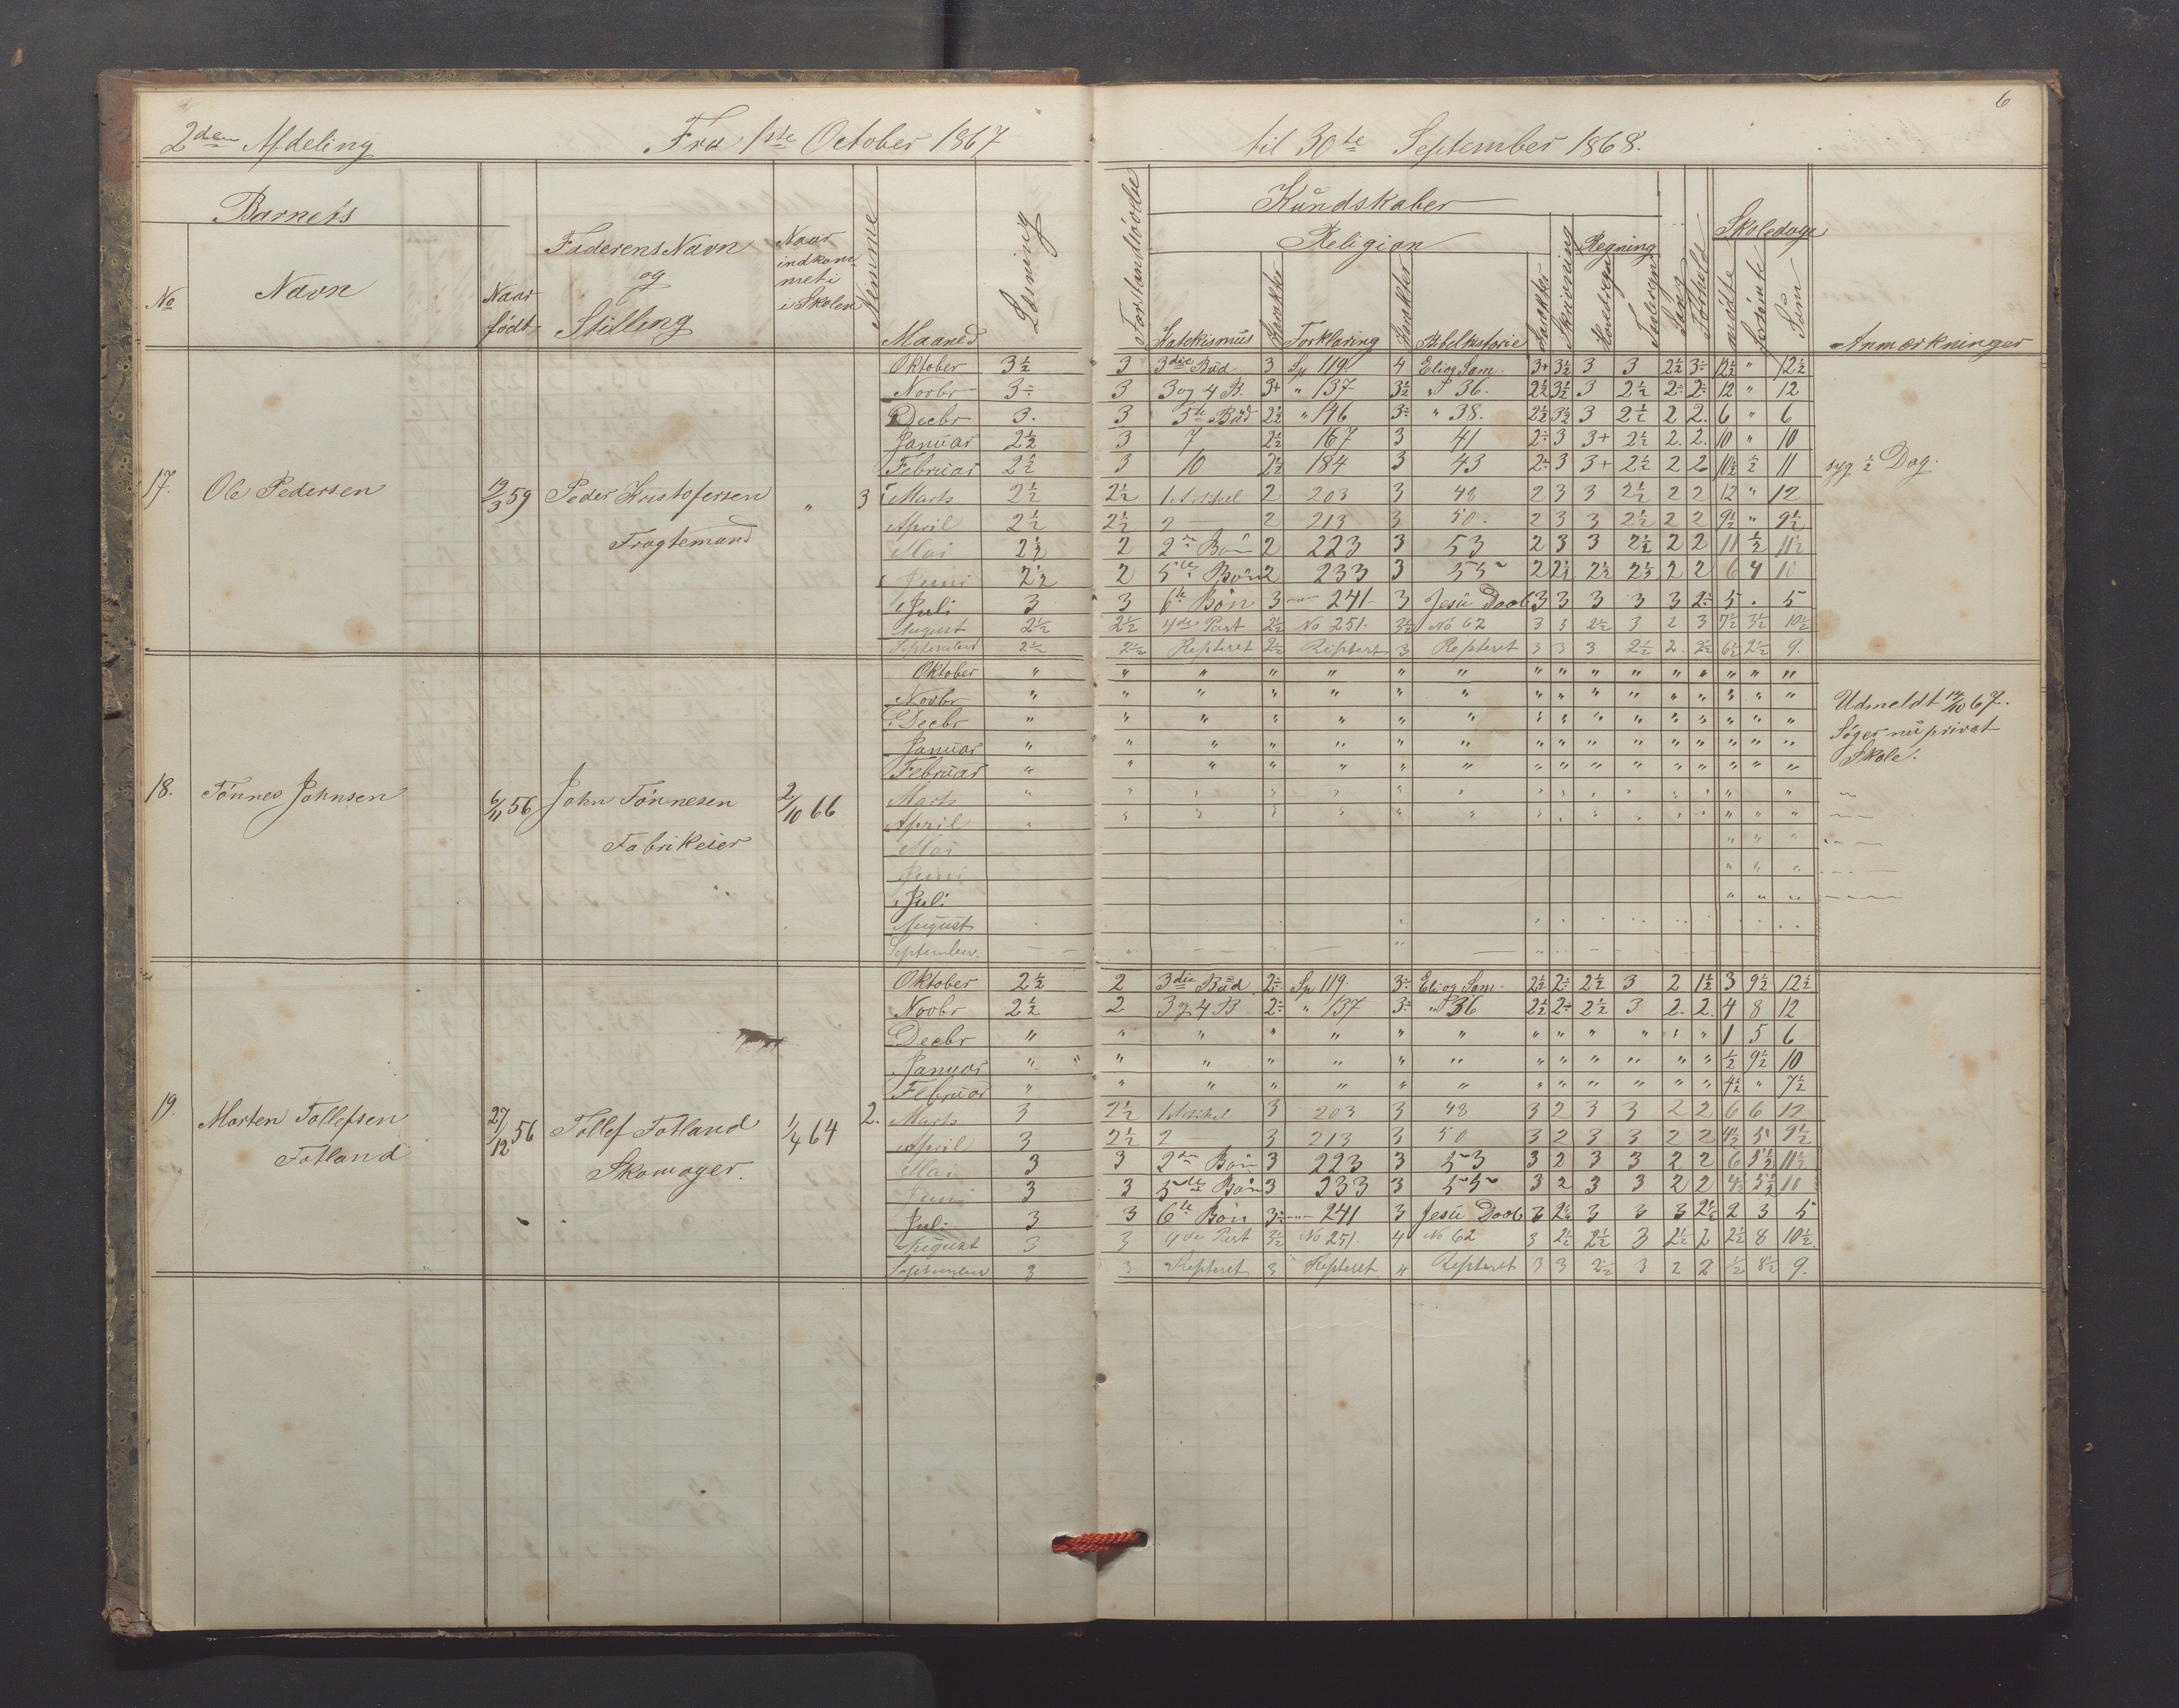 6
2den Afdeling Fra 1ste October 1867 til 30te September 1868.
Barnets Kundskaber
Religion Regning Skoledage
No Navn Naar født Faderens Navn og Stilling Naar indkommet i Skolen Nemme Maaned Læsning Forstandsøvelse Katekismus Karakter Forklaring Karakter Bibelhistorie Karakter Skrivning Hovedregn Tavleregn Sang Forhold mødte forsømte Sum Anmærkninger
17. Ole Pedersen 19/3 59 Peder Kristofersen Fragtemand " 3
Oktober 3½ 3 3die Bud 3 Sp 119. 4 Eli og Sam. 3+ 3½ 3 3 2½ 3÷ 12½ " 12½
Novbr 3÷ 3 3 og 4 B. 3+ " 137 3½ " 36. 2½ 3½ 3 2½ 2÷ 2÷ 12 " 12
Decbr 3. 3 5te Bud 2½ " 146 3÷ " 38. 2½ 3½ 3 2½ 2 2. 6 " 6
Januar 2½ 3 7 2½ 167 3 41 2÷ 3 3+ 2½ 2. 2. 10 " 10
Februar 2½ 3 10 2½ 184 3 43 2÷ 3 3+ 2½ 2 2 10½ ½ 11 syg ½ Dag.
Marts 2½ 2½ 1 Artikel 2 203 3 48 2 3 3 2½ 2 2 12 " 12
April 2½ 2½ 2 2 213 3 50. 2 3 3 2½ 2 2 9½ " 9½
Mai 2½ 2 2den Bøn 2 223 3 53 2 3 3 2½ 2 2 11 ½ 11½
Juni 2½ 2 5te Bøn 2 233 3 55 2 2½ 2½ 2½ 2 2 6 4 10
Juli 3 3 6te Bøn 3 241 3 Jesu Daab 3 3 3 3 3 2÷ 5 . 5
August 2½ 2½ 4de Part 2½ No 251. 3½ No 62 3 3 2½ 3 2 3 7½ 3½ 10½
September 2½ 2½ Repteret 2½ Repteret 3 Repteret 3 3 3 2½ 2. 2½ 6½ 2½ 9.
18. Tønnes Johnsen 6/11 56 John Tønnesen Fabrikeier 2/10 66
Oktober " " " " " " " " " " " " " " " "
Novbr " " " " " " " " " " " " " " " " Udmeldt 12/10 67.
Decbr " " " " " " " " " " " " " " " " Søger nu privat
Januar " " " " " " " " " " " " " " " " Skole.
Februar " " " " " " " " " " " " " " " "
Marts " " " " " " " " " " " " " "
April " " " " " " " " " " " " " " " "
Mai " " "
Juni " " "
Juli " " "
August
September.
19. Morten Tollefsen Fotland 27/12 56 Tollef Fotland Skomager. 1/4 64 2.
Oktober 2½ 2 3die Bud 2÷ Sp 119. 3÷ Eli og Sam. 2½ 2÷ 2½ 3 2 1½ 3 9½ 12½
Novbr 2½ 2 3 og 4 B 2÷ " 137 3÷ " 36 2½ 2÷ 2½ 3 2. 2. 4 8 12
Decbr " " " " " " " " " " " " " 1 5 6
Januar " " " " " " " " " " " " " " ½ 9½ 10
Februar " " " " " " " " " " " " " 4½ " 7½
Marts 3 2½ 1 Artikel 3 203 3 48 3 2 3 3 2 2 6 6 12
April 3 2½ 2 3 213 3 50 3 2 3 3 2 2 4½ 5 9½
Mai 3 3 2den Bøn 3 223 3 53 3 2 3 3 2 2 6 5½ 11½
Juni 3 3 5te Bøn 3 233 3 55 3 2 3 3 2 2 4½ 5½ 10
Juli 3 3 6te Bøn 3½ 241 3 Jesu Daab 3 2½ 3 3 3 2½ 2 3 5
August 3 3 4de Part 3½ No 251. 4 No 62 3 2½ 2½ 3 2½ 2 2½ 8 10½
September 3 3 Repteret 3 Repteret 4 Repteret 3 3 2½ 3 2 2 ½ 8½ 9.